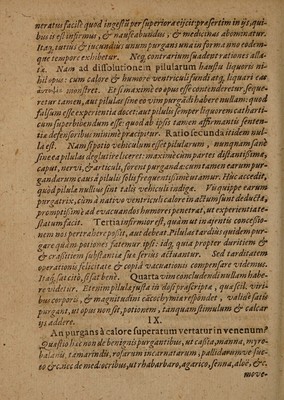 neratus facilè quod ingestũ per superiora eijcit: præsertim in ijs, qui-
bus is est infirmus, & nauseabundus, & medicinas abominatur.
Itaq, tutius & iucundius unum purgans una in forma uno eodem-
que tempore exhibetur. Neg, contrarium suadent rationes alla-
tæ. Nam ad dissolutionem pilularum haustu liquoris ni-
hil opus: cum calore & humore ventriculi fundi atq, liquari
monstret. Et si maximè eo opus esse contenderetur, seque-
retur tamen, aut pilulas sine eo vim purgãdi habere nullam: quod
falsum esse experientia docet: aut pilulis semper liquorem calthariti-
cum superbibendum esse: quod ab ipsis tamen affirmantis senten-
tiæ defensoribus minimè præcipitur. Ratio secunda itidem nul-
la est. Nam si potio vehiculum esset pilularum, nunquam sanè
sine ea pilulas deglutire liceret: maximè cum partes distantissimæ,
caput, nervi, & articuli, forent purgandæ: cum tamen earum pur-
gandarum causa pilulis solis frequentissimè utamur. Huc accedit,
quòd pilula nullius sint talis vehiculi indigæ. Vis quippe earum
purgatrix, cum à nativo ventriculi calore in actum sunt deductæ,
promptissimè ad evacuandos humores penetrat, ut experientia te-
statum facit. Tertia infirmior est, quàm ut in ajentis concessio-
nem nos pertrahere possit, aut debeat. Pilulæ tardius quidem pur-
gare quàm potiones fatemur ipsi: idq, quia propter duritiem &
crassitiem substantiæ suæ serius actuantur. Sed tarditatem
operationis felicitate & copia vacuationis compensare videmus.
Itaq, sat citò, si sat benè. Quarta vim concludendi nullam habe-
re videtur. Etenim pilula justa in dosi præscripta, quæ scil. viri-
bus corporis, & magnitudini cacochymiæ respondet, valide satis
purgant, ut opus non sit, potionem, tanquam stimulum & calcar
ijs addere.
IX.
An purgans à calore superatum vertatur in venenum?
Quæstio hæc non de benignis purgantibus, ut cassia, manna, myro-
balanis, tamarindis, rosarum incarnatarum, pallidarumve suc-
co &c. nec de mediocribus, ut rhabarbaro, agarico, senna, aloë, &c.
move-